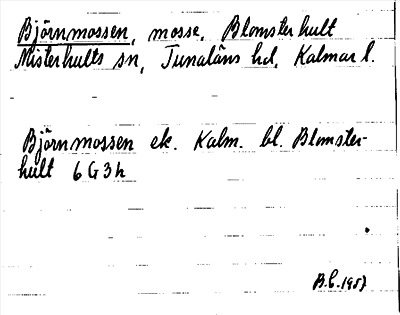 Björnmossen, mosse, Blomsterhult
Misterhults sn, Tunaläns hd, Kalmar l.
Björnmossen ek. Kalm. bl. Blomster-
hult 6G3h
B.L. 1957